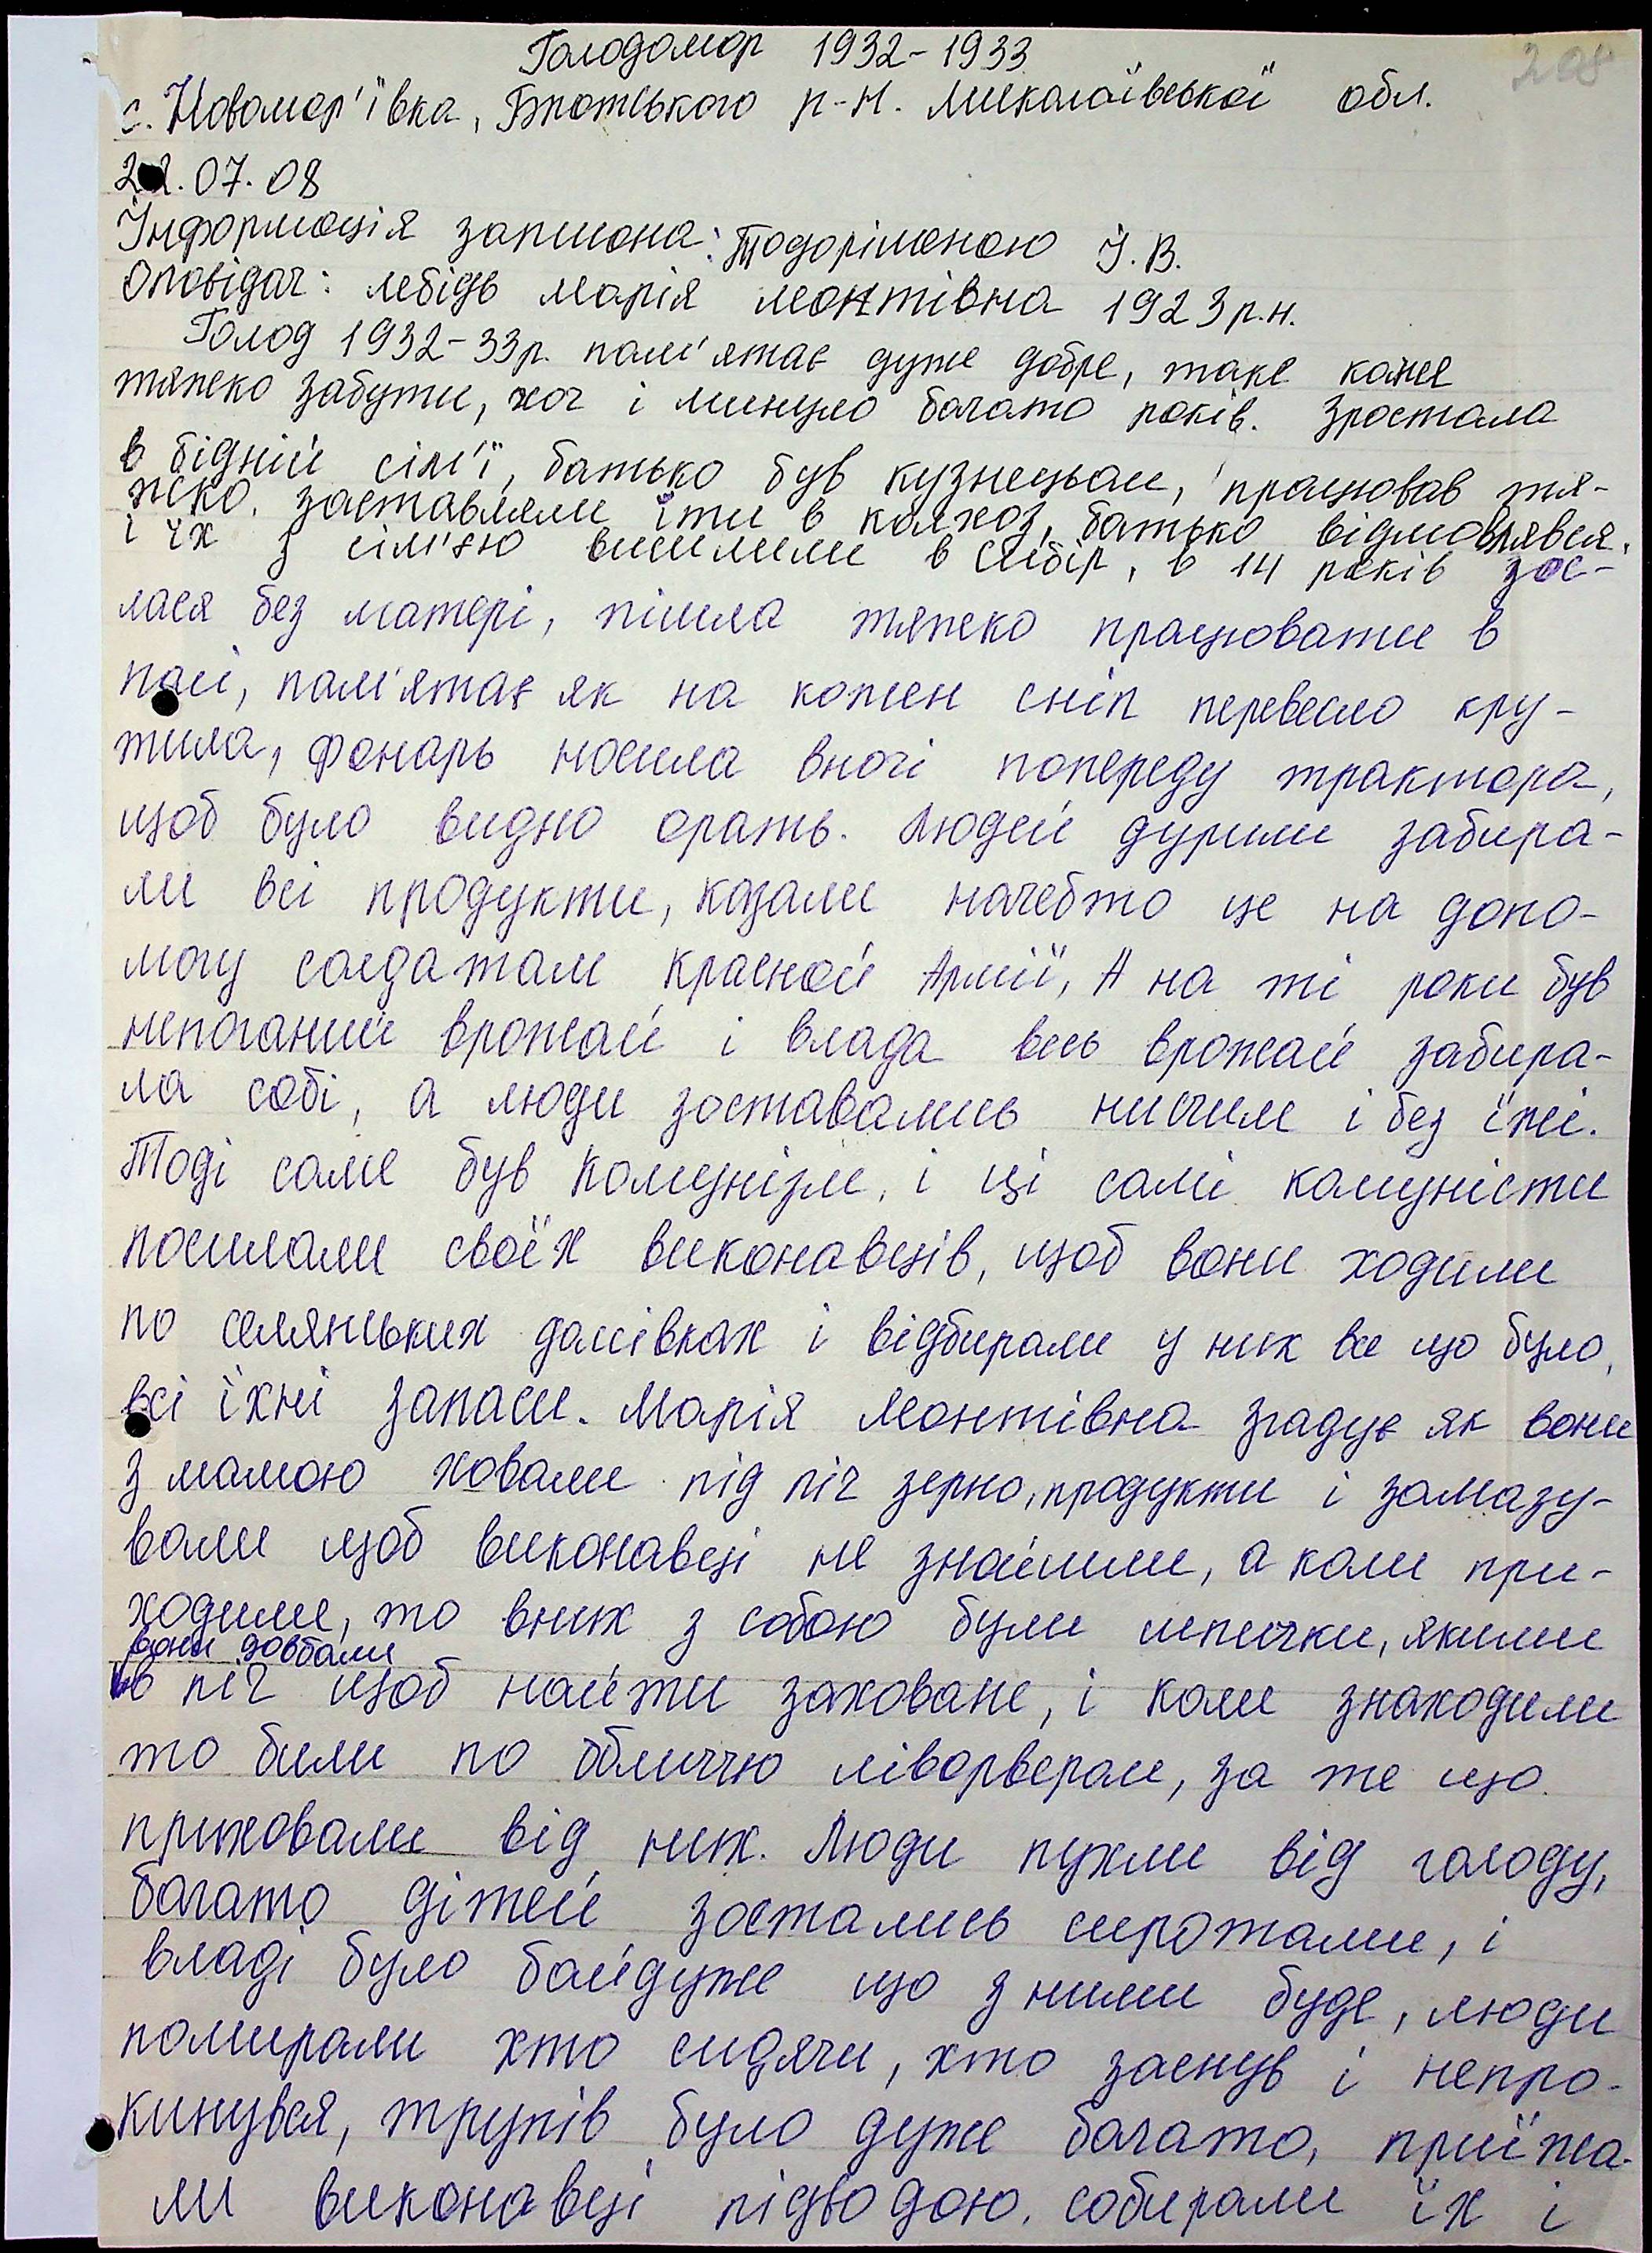 208
Голодомор 1932-1933
с. Новомар'ївка, Братського р-н. Миколаївської обл.
22.07.08
Інформація записана: Тодорішеною І.В.
Оповідач: Лебідь Марія Леонтівна 1923р.н.
Голод 1932-33р. пам'ятає дуже добре, таке каже
тяжко забути, хоч і минуло багато років. Зростала
в бідній сім'ї, батько був кузнецьом, працював тя-
жко. заставляли іти в колхоз, батько відмовлявся,
і їх з сім'єю висилили в Сибір, в 14 років зос-
лася без матері, пішла тяжко працювати в
полі, пам'ятає як на кожен сніп перевесло кру-
тила, фонарь носила вночі попереду трактора,
щоб було видно орать. Людей дурили забира-
ли всі продукти, казали начебто це на допо-
могу солдатам Красной Армії, А на ті роки був
непоганий врожай і влада весь врожай забира-
ла собі, а люди зоставались нищими і без їжі.
Тоді саме був комунізм, і ці самі комуністи
посилали своїх виконавців, щоб вони ходили
по селянських домівках і відбирали у них все що було,
всі їхні запаси. Марія Леонтівна згадує як вони
з мамою ховали під піч зерно, продукти і замазу-
вали щоб виконавці не знайшли, а коли при-
ходили, то вних з собою були шпички, якими
вони довбали
в піч щоб найти заховане, і коли знаходили
то били по обличчю ліворвером, за те що
приховали від них. Люди пухли від голоду,
багато дітей зостались сиротами, і
владі було байдуже що з ними буде, люди
помирали хто сидячи, хто заснув і непро-
кинувся, трупів було дуже багато, приїжа-
ли виконавці підводою, собирали їх і